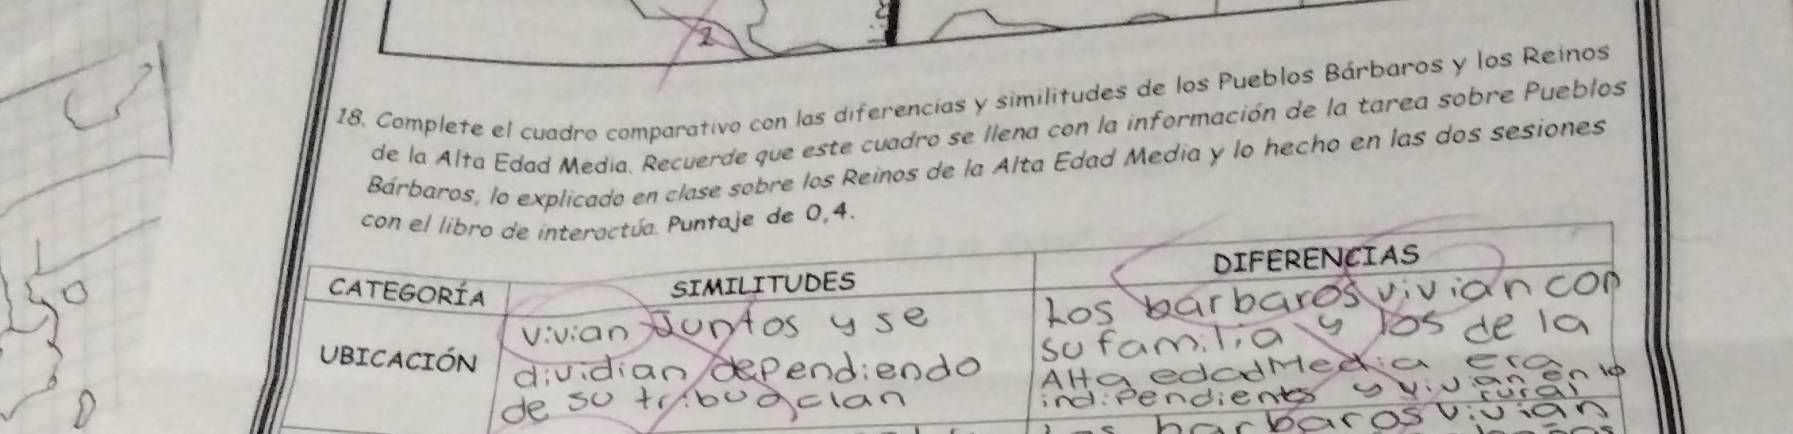 2
18. Complete el cuadro comparativo con las diferencias y similitudes de los Pueblos Bárbaros y los Reinos
de la Alta Edad Media. Recuerde que este cuadro se llena con la información de la tarea sobre Pueblos
Bárbaros, lo explicado en clase sobre los Reinos de la Alta Edad Media y lo hecho en las dos sesiones
con el libro de interactúa. Puntaje de 0,4.
CATEGORÍA SIMILITUDES DIFERENCIAS
UBICACIÓN
vivian Juntos y se
dividian dependiendo
de su tribu o clan
Los barbaros vivian con
su familia y los de la
Alta edad Media era
indipendientes y vivian en lo
rural
barbaros vivian